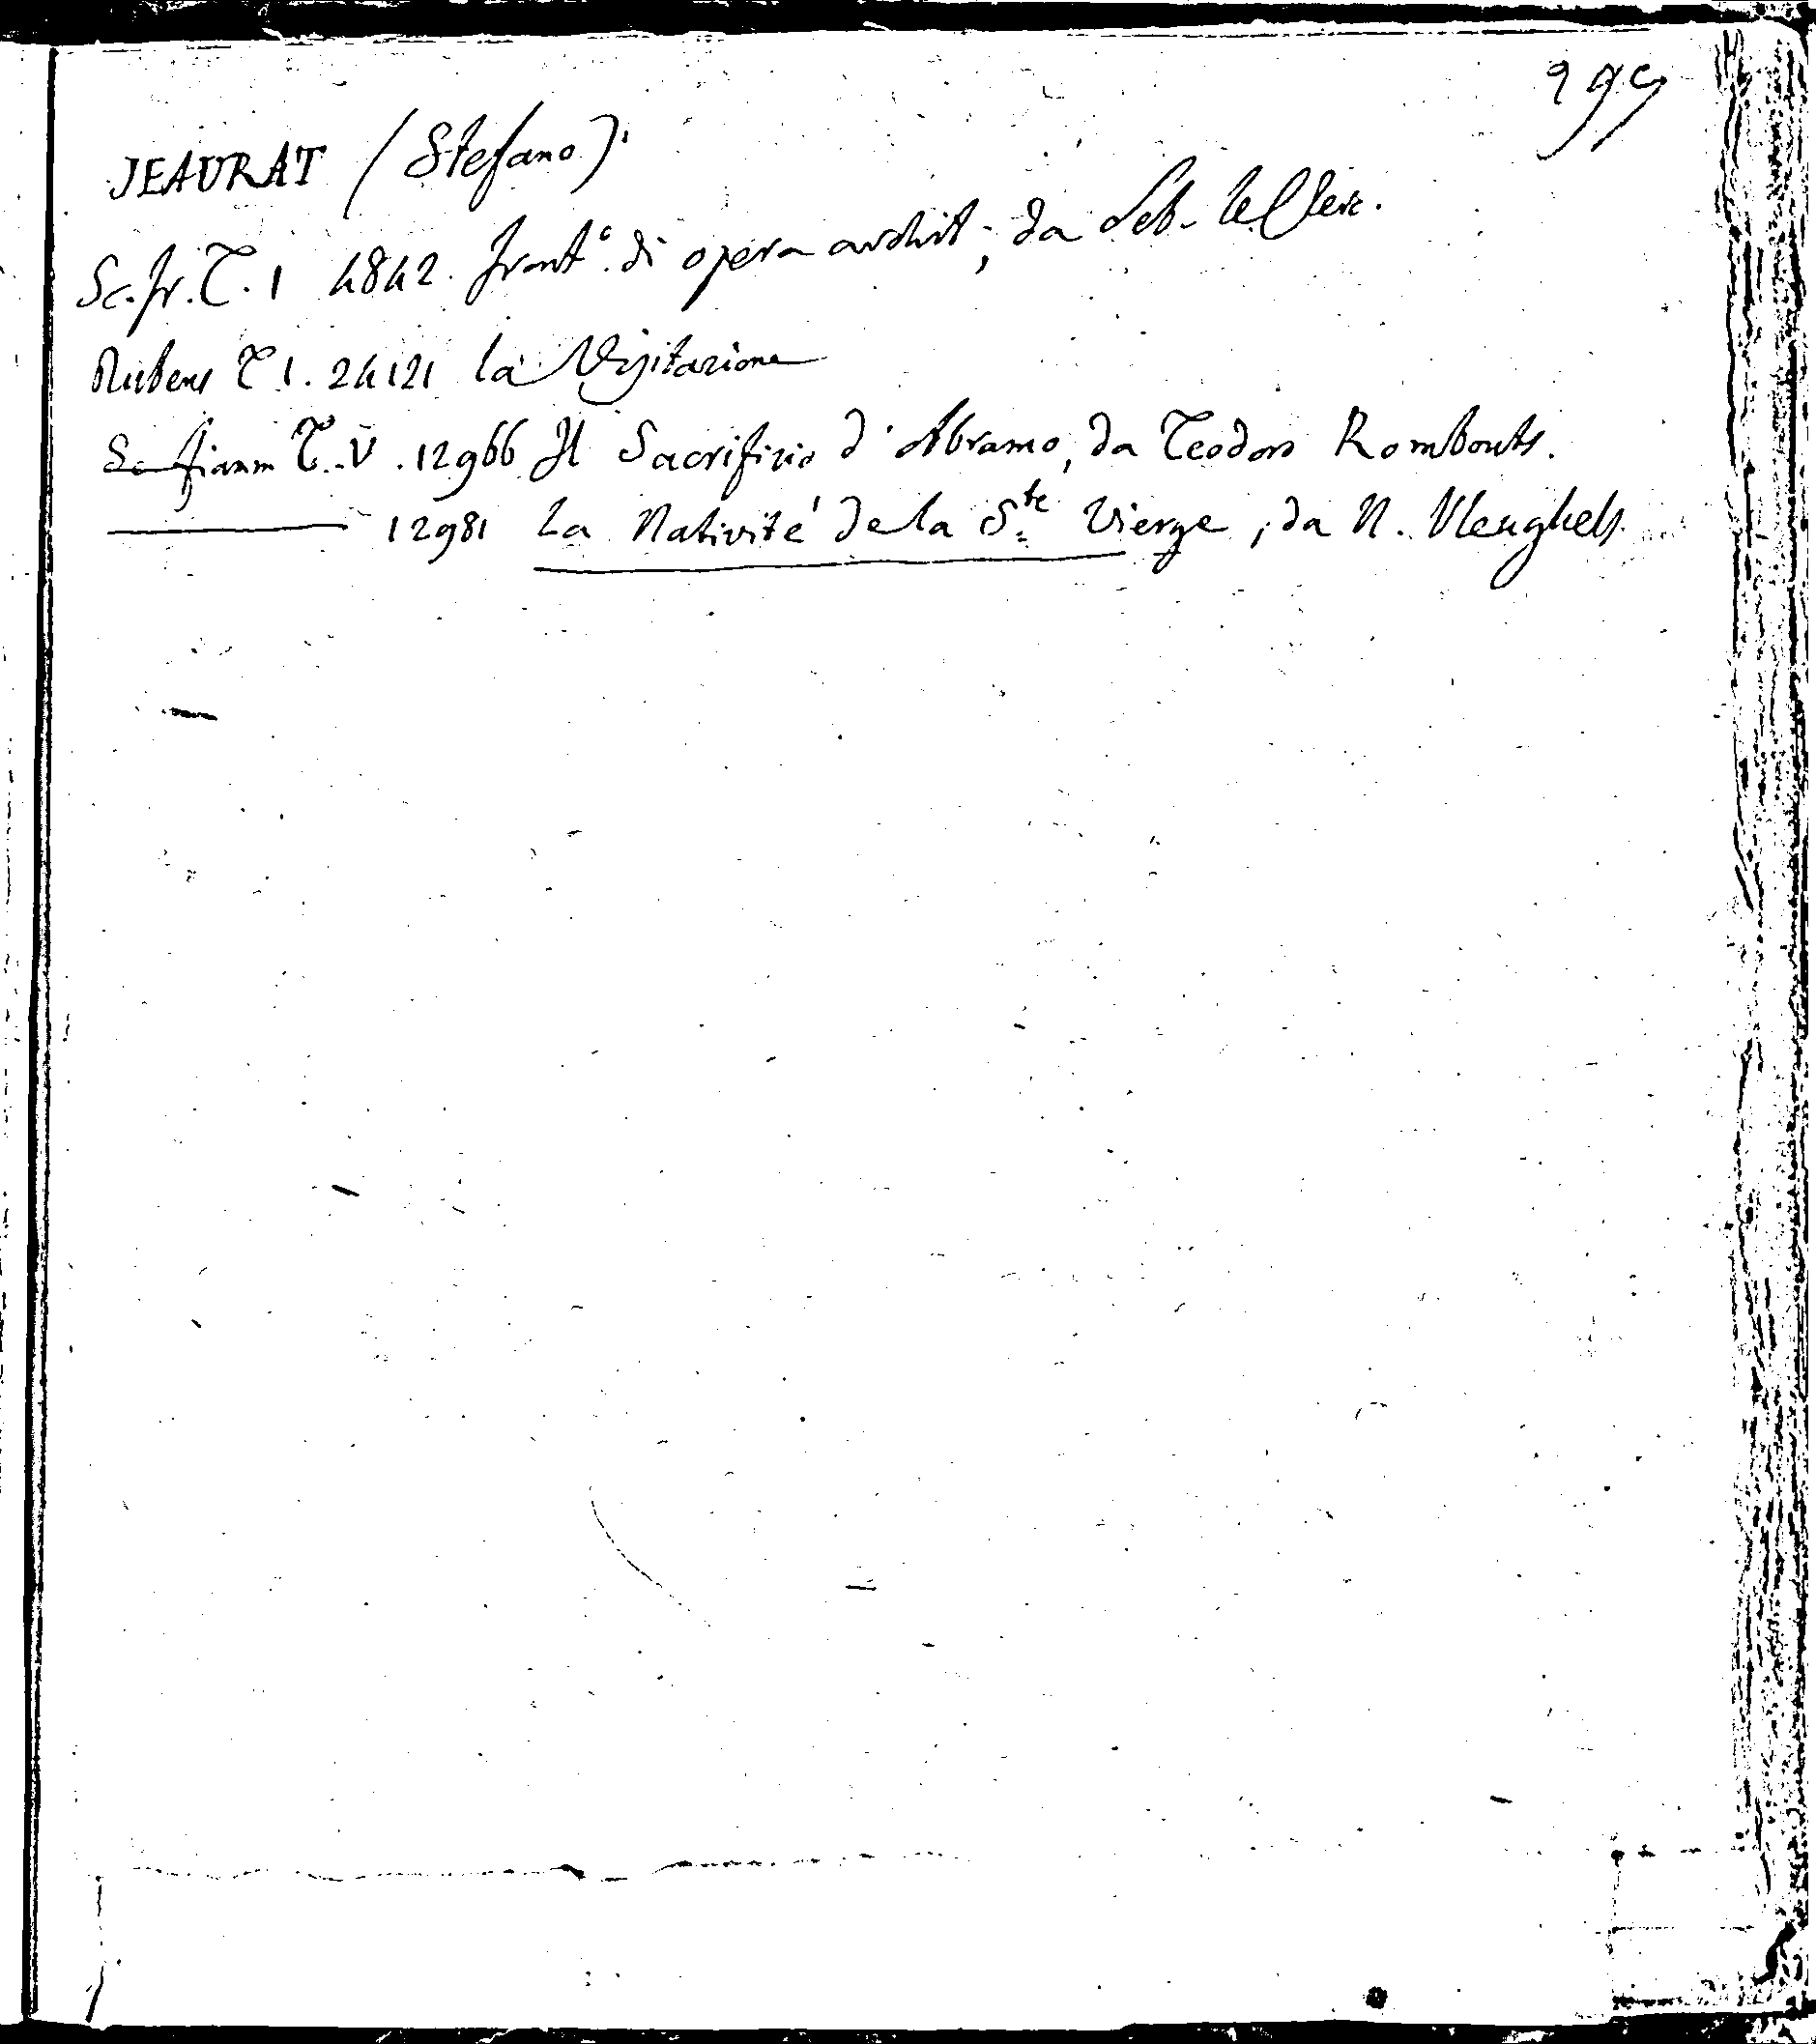 299
JEAURAT (Stefano).
Sc. fr. T. 1 4842. front.º di opera archit.; da Seb. le Clerc.
Rubens T 1. 24121 la Visitazione
Sc fiamm T. V. 12966 Il Sacrifizio d'Abramo, da Teodoro Rombouts.
12981 La Nativité de la Ste Vierge, da N. Vleughels.